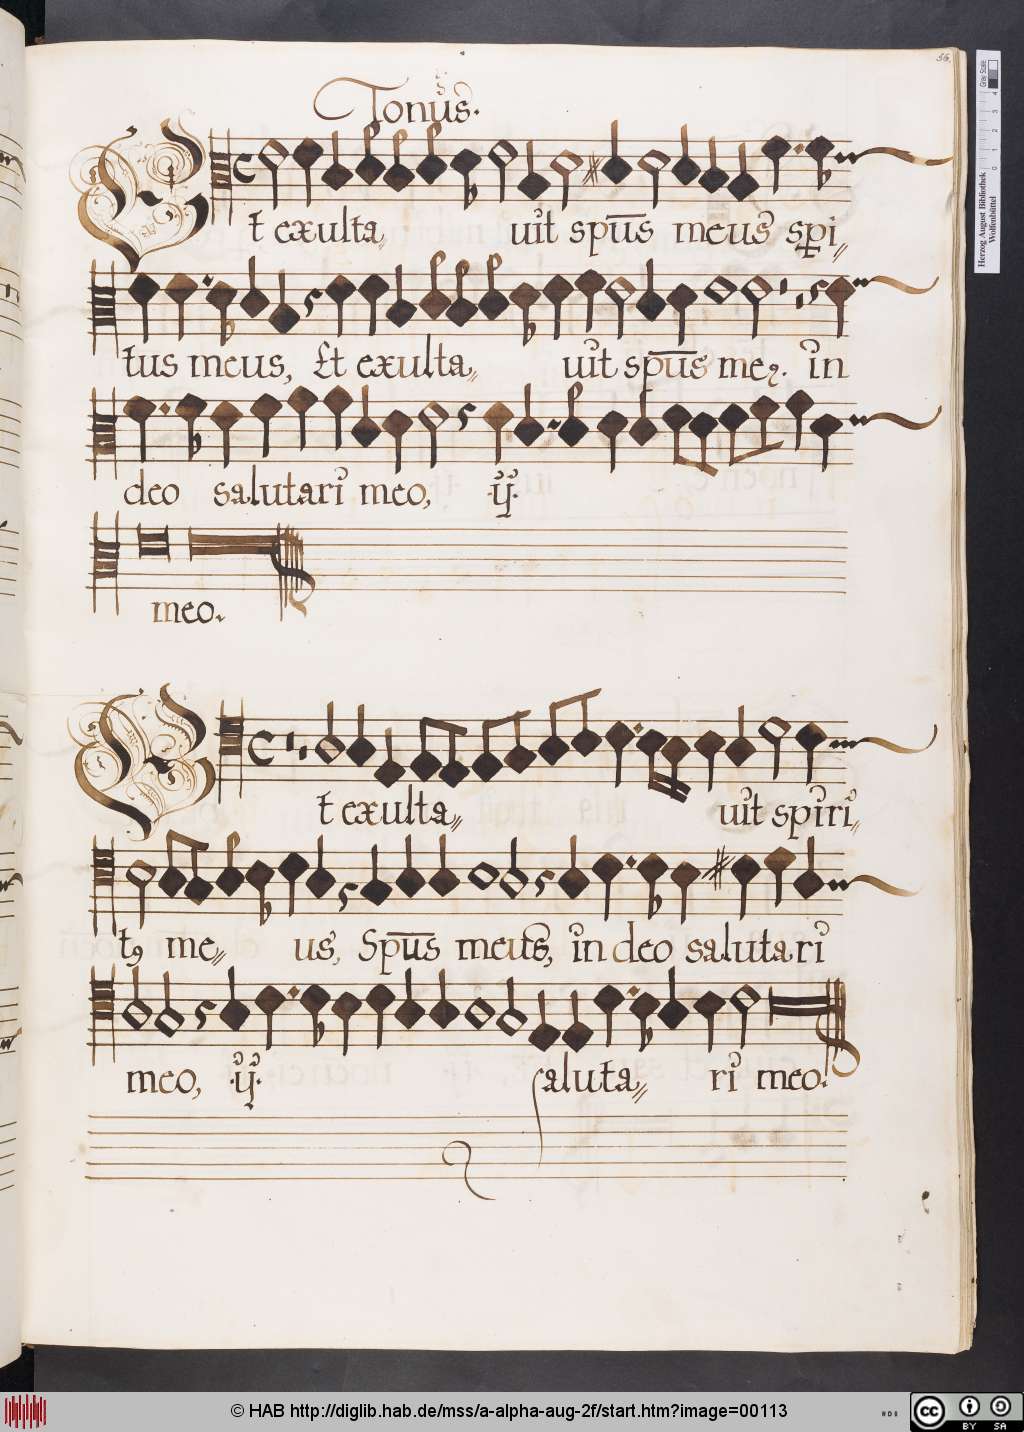 56.
Tonus.
Et exulta⸗ uit spūs meus spi⸗
tus meus, Et exulta⸗ uit spūs meꝯ. in
deo salutari meo, ·ij·
meo.
Et exulta⸗ uit spiri⸗
tꝯ me⸗ us, Spūs meus, in deo salutari
meo, ·ij· saluta⸗ ri meo.
Herzog August Bibliothek
Wolfenbüttel
Gray Scale
0 1 2 3 4
© HAB http://diglib.hab.de/mss/a-alpha-aug-2f/start.htm?image=00113
HAB
cc BY SA